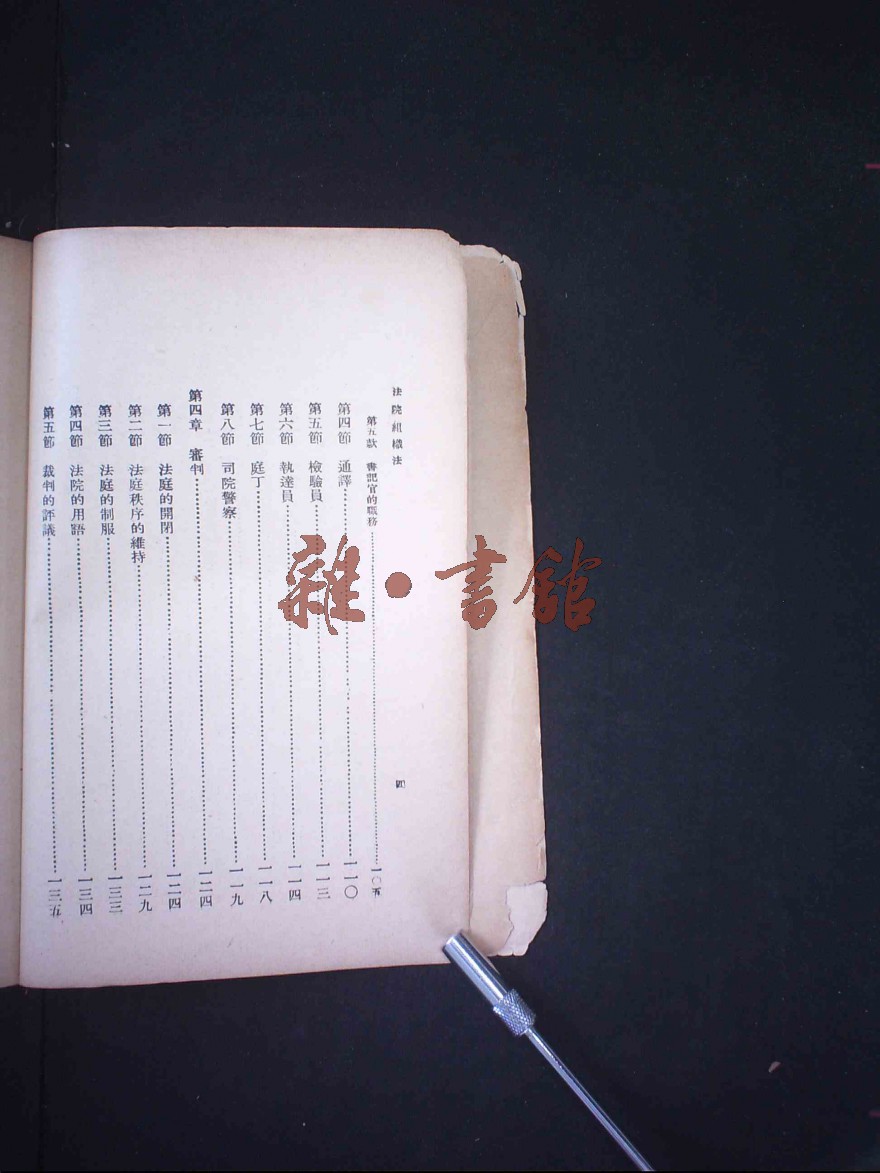 法院組織法
四
第五款　書記官的職務…一〇五
第四節　通譯…一一〇
第五節　檢驗員…一一三
第六節　執達員…一一四
第七節　庭丁…一一八
第八節　司院警察…一一九
第四章　審判…一二四
第一節　法庭的開閉…一二四
第二節　法庭秩序的維持…一二九
第三節　法庭的制服…一三三
第四節　法院的用語…一三四
第五節　裁判的評議…一三五
雜·書館